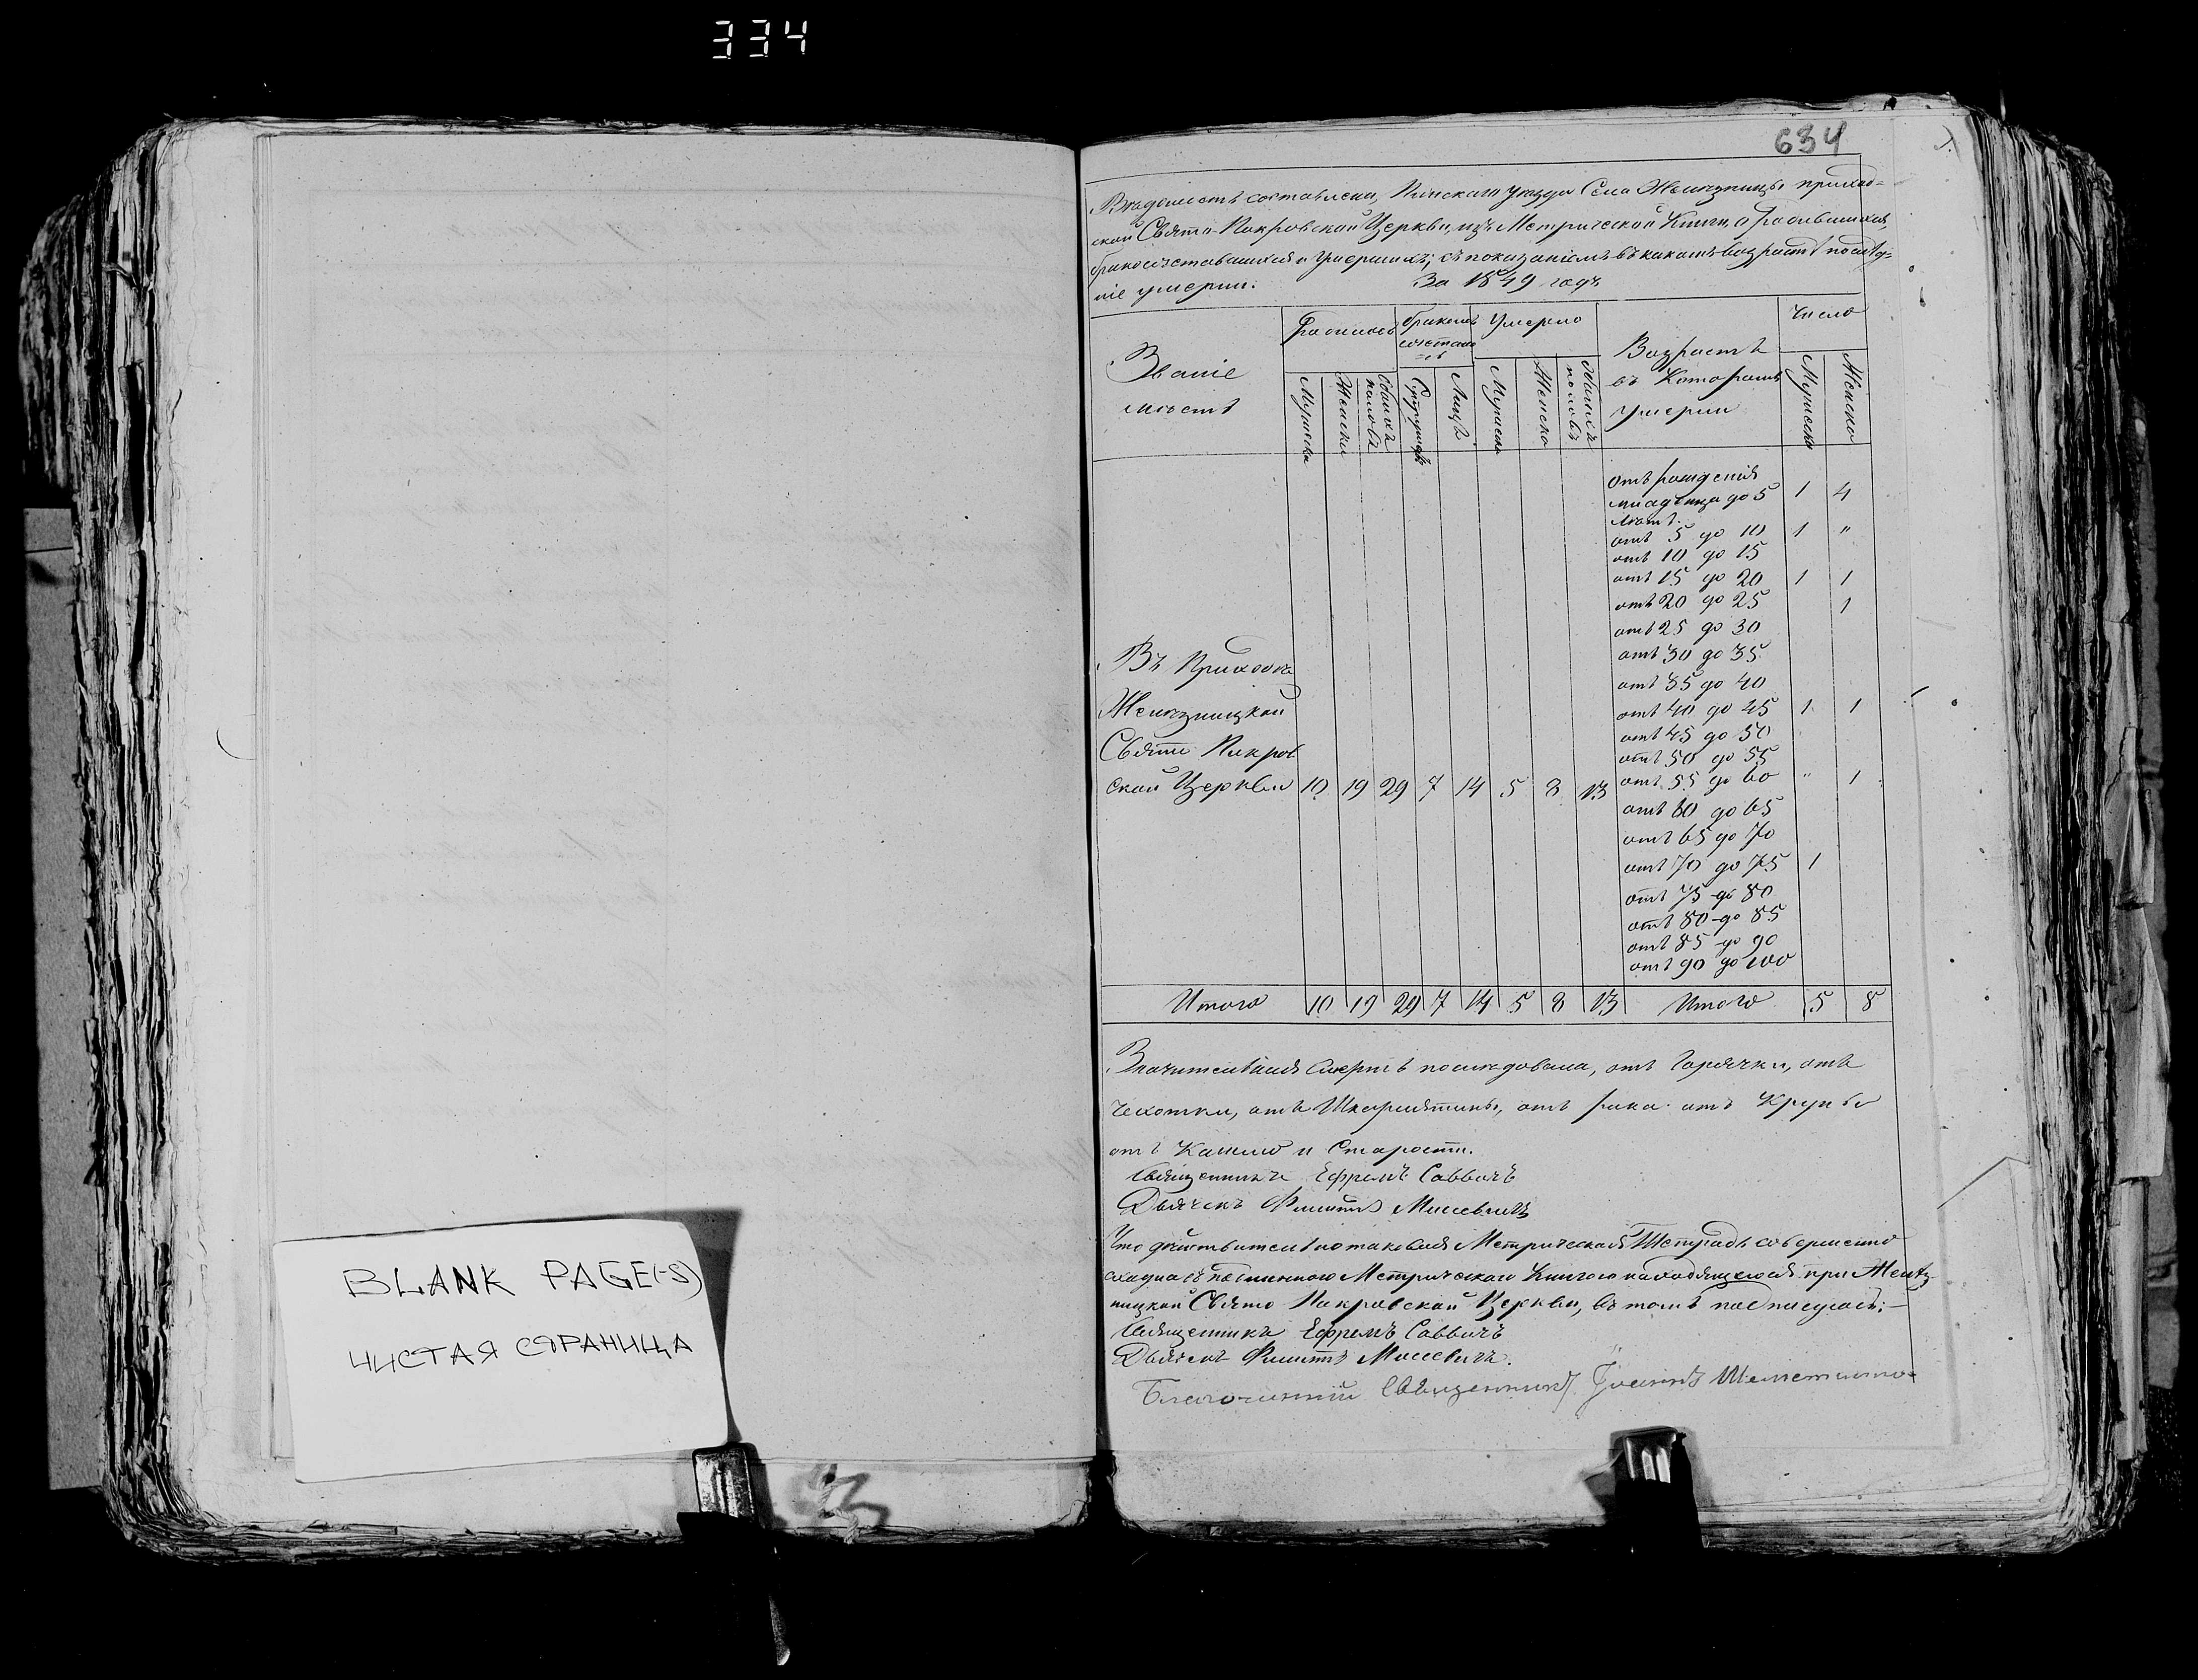 334
634
Вѣдомость составлена, Пинскаго уезда Села Жемчужицы приход=
ской Свято-Покровской Церкви, изъ Метрической Книги, о Родившихся,
бракосочетавшихся и Умершихъ; съ показаніемъ въ какомъ возрастѣ послѣд=
ніе умерли. За 1849 годъ
Званіе
мѣстъ
Родилось
Мужеска
Женска
Обоихъ половъ
бракомъ
сочетало
=сь
Супружествъ
Лицъ
Умерло
Мужеска
Женска
Обоихъ половъ
Возрастъ
въ Которомъ
умерли
Число
Мужеска
Женска
Отъ рожденія
младенца до 5 1 4
лѣтъ.
отъ 5 до 10 1 "
отъ 10 до 15
отъ 15 до 20 1 1
отъ 20 до 25 1
отъ 25 до 30
отъ 30 до 35
отъ 35 до 40
отъ 40 до 45 1 1
отъ 45 до 50
отъ 50 до 55
отъ 55 до 60 " 1
отъ 60 до 65
отъ 65 до 70
отъ 70 до 75 1
отъ 75 до 80
отъ 80 до 85
отъ 85 до 90
отъ 90 до 100
Въ Приходѣ
Свято Покров
ской Церкви 10 19 29 7 14 5 8 13
Итого 10 19 29 7 14 5 8 13 Итого 5 8
Значительная смерть последовала, отъ Горячки, отъ
Чехотки, отъ Шкарлятины, отъ рака отъ Крупы
отъ Кашлю и Старости.
Священникъ Ефремъ Саввичъ
Дьячекъ Филиппъ Мисевичъ
Что действительно таковая Метрическая Тетрадь совершенно
сходна съ подлинною Метрическаго Книгою находящеюся при
ницкой Свято Покровской Церкви, въ томъ подписуюсь:-
Священникъ Ефремъ Саввичъ
Дьячекъ Филиппъ Мисевичъ.
Благочинный Священникъ Іоаннъ
BLANK PAGE(-S)
ЧИСТАЯ СТРАНИЦА